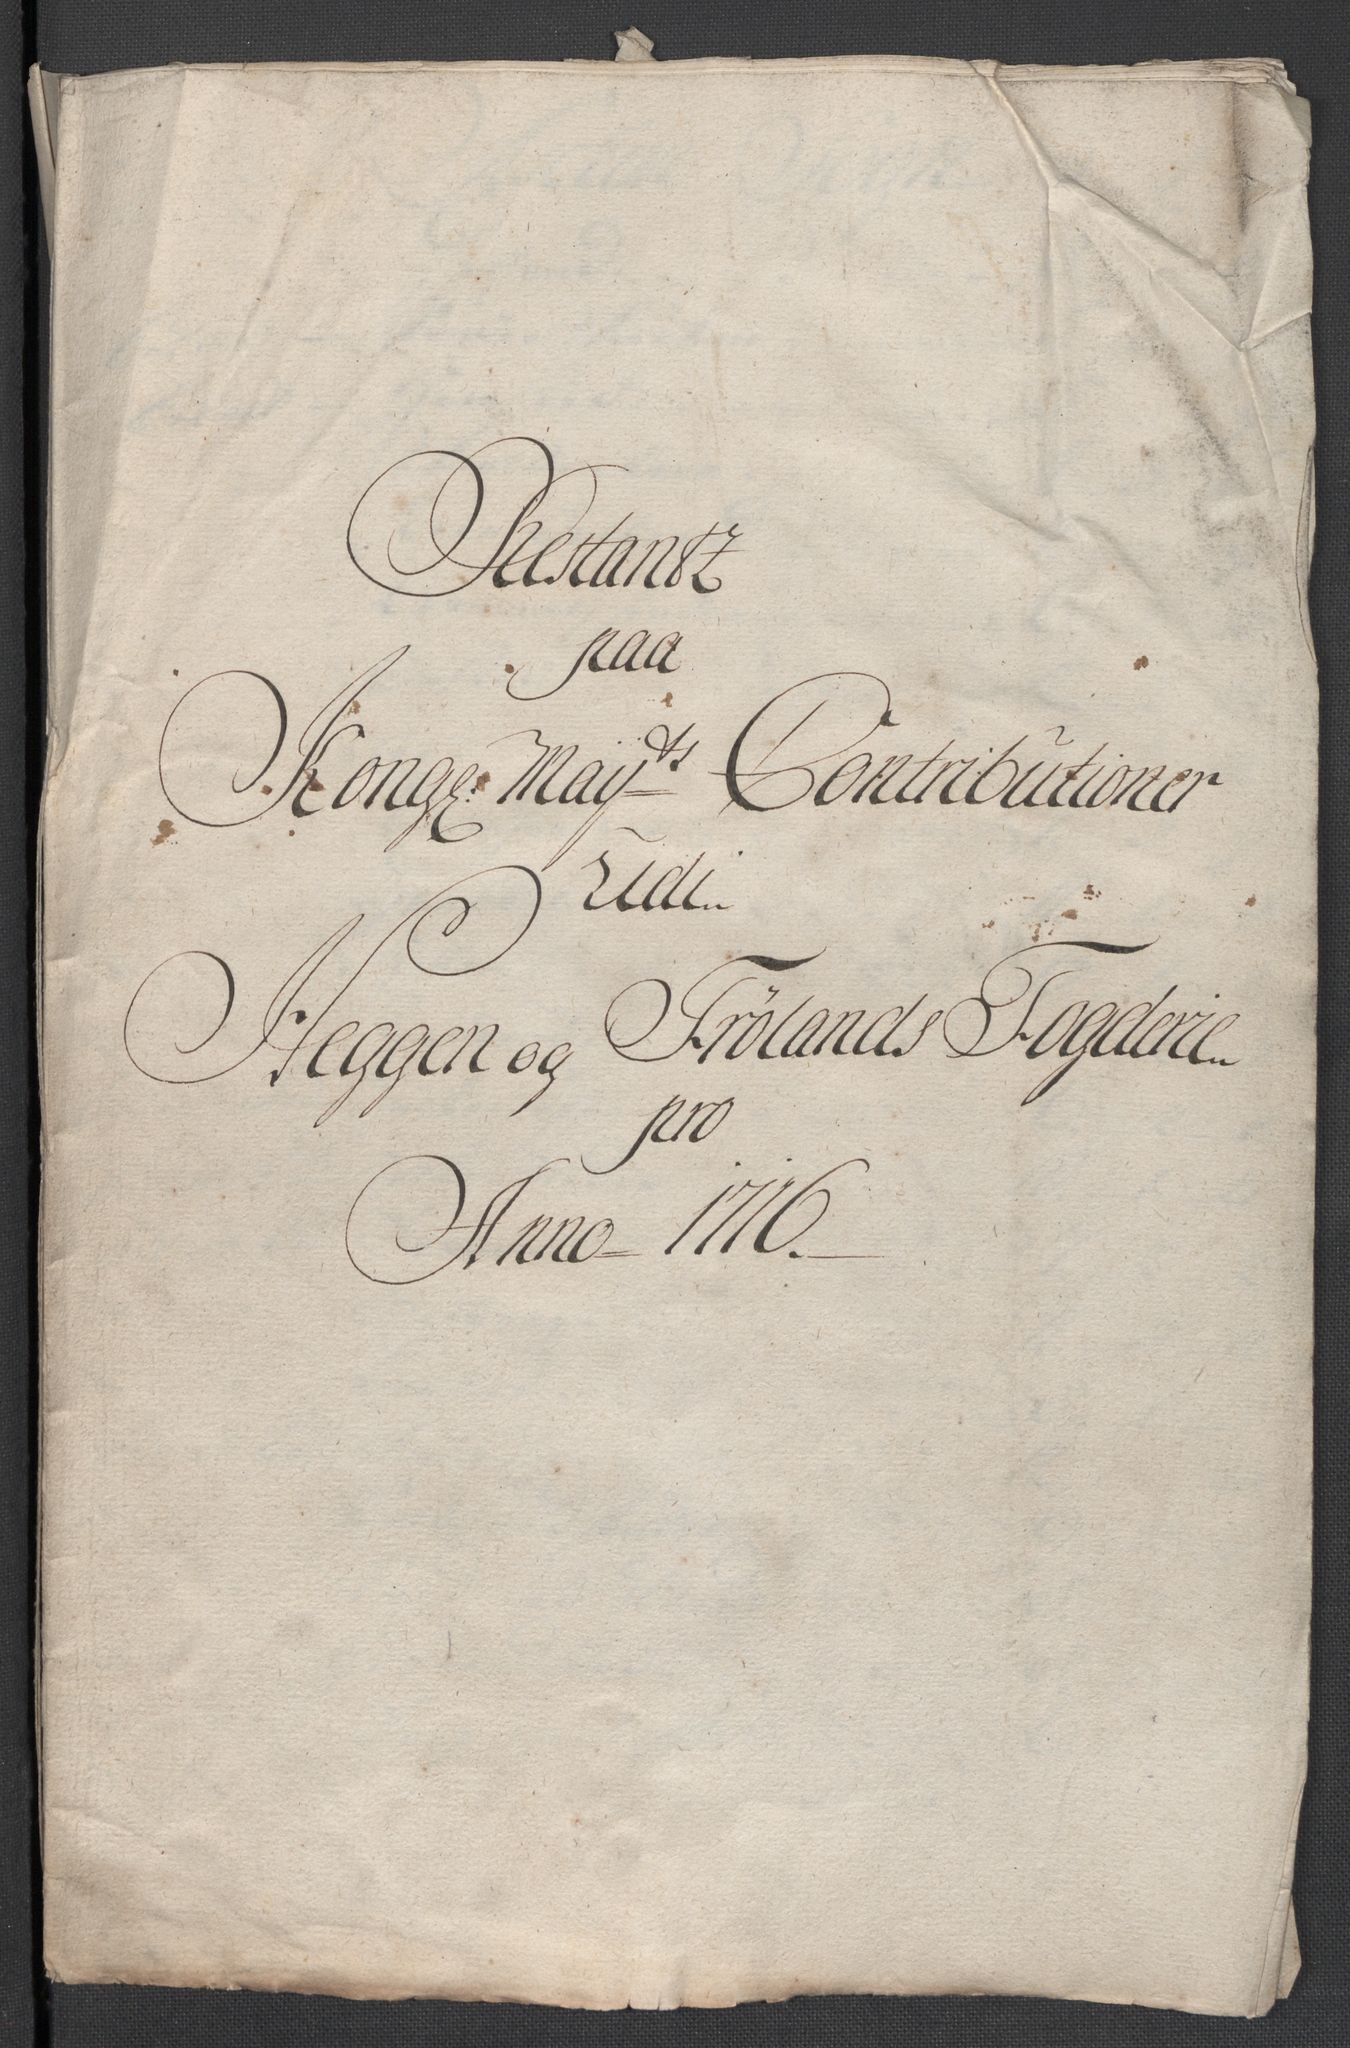 Restantz
paa
Kongl: Maÿts Contributioner
Udi
Heggen og Frölands Fogderie
pro
Anno 1716.